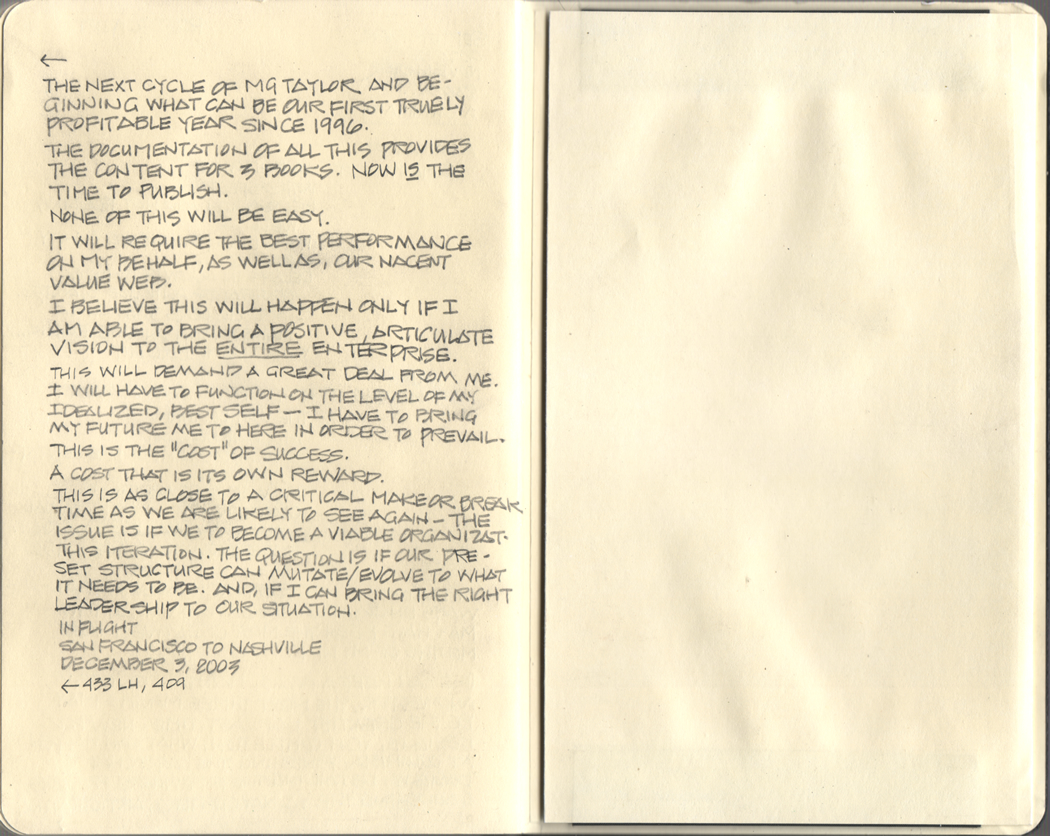 ←
THE NEXT CYCLE OF MG TAYLOR AND BE-
GINNING WHAT CAN BE OUR FIRST TRUELY
PROFITABLE YEAR SINCE 1996.
THE DOCUMENTATION OF ALL THIS PROVIDES
THE CONTENT FOR 3 BOOKS. NOW IS THE
TIME TO PUBLISH.
NONE OF THIS WILL BE EASY.
IT WILL REQUIRE THE BEST PERFORMANCE
ON MY BEHALF, AS WELL AS, OUR NACENT
VALUE WEB.
I BELIEVE THIS WILL HAPPEN ONLY IF I
AM ABLE TO BRING A POSITIVE, ARTICULATE
VISION TO THE ENTIRE ENTERPRISE.
THIS WILL DEMAND A GREAT DEAL FROM ME.
I WILL HAVE TO FUNCTION ON THE LEVEL OF MY
IDEALIZED, BEST SELF — I HAVE TO BRING
MY FUTURE ME TO HERE IN ORDER TO PREVAIL.
THIS IS THE "COST" OF SUCCESS.
A COST THAT IS ITS OWN REWARD.
THIS IS AS CLOSE TO A CRITICAL MAKE OR BREAK
TIME AS WE ARE LIKELY TO SEE AGAIN — THE
ISSUE IS IF WE TO BECOME A VIABLE ORGANIZAT·
THIS ITERATION. THE QUESTION IS IF OUR PRE-
SET STRUCTURE CAN MUTATE/EVOLVE TO WHAT
IT NEEDS TO BE. AND, IF I CAN BRING THE RIGHT
LEADERSHIP TO OUR SITUATION.
IN FLIGHT
SAN FRANCISCO TO NASHVILLE
DECEMBER 3, 2003
← 433 LH, 409